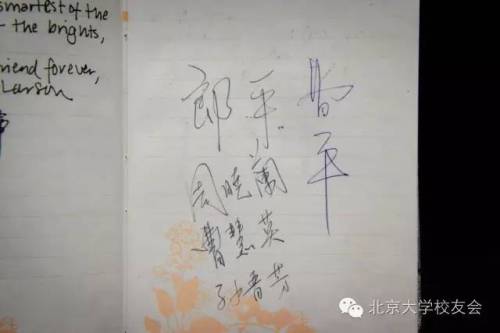 smartest of the
the brights,
friend forever,
Larson
郎平
周晓兰
曹慧英
孙晋芳
平
北京大学校友会